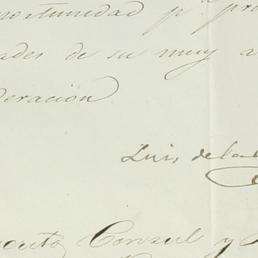 oportunidad pª pro
ades de su muy a
deracion
Luis de la
Consul y